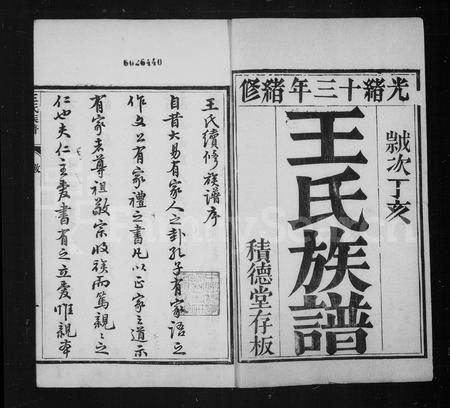 光緒十三年續修
歲次丁亥
王氏族譜
積德堂存板
6026440
王氏續修族譜序
自昔大易有家人之卦孔子有家語之
作文公有家禮之書凡以正家之道示
有家者尊祖敬宗收族而篤親親之
仁也夫仁主愛書有之立愛惟親本